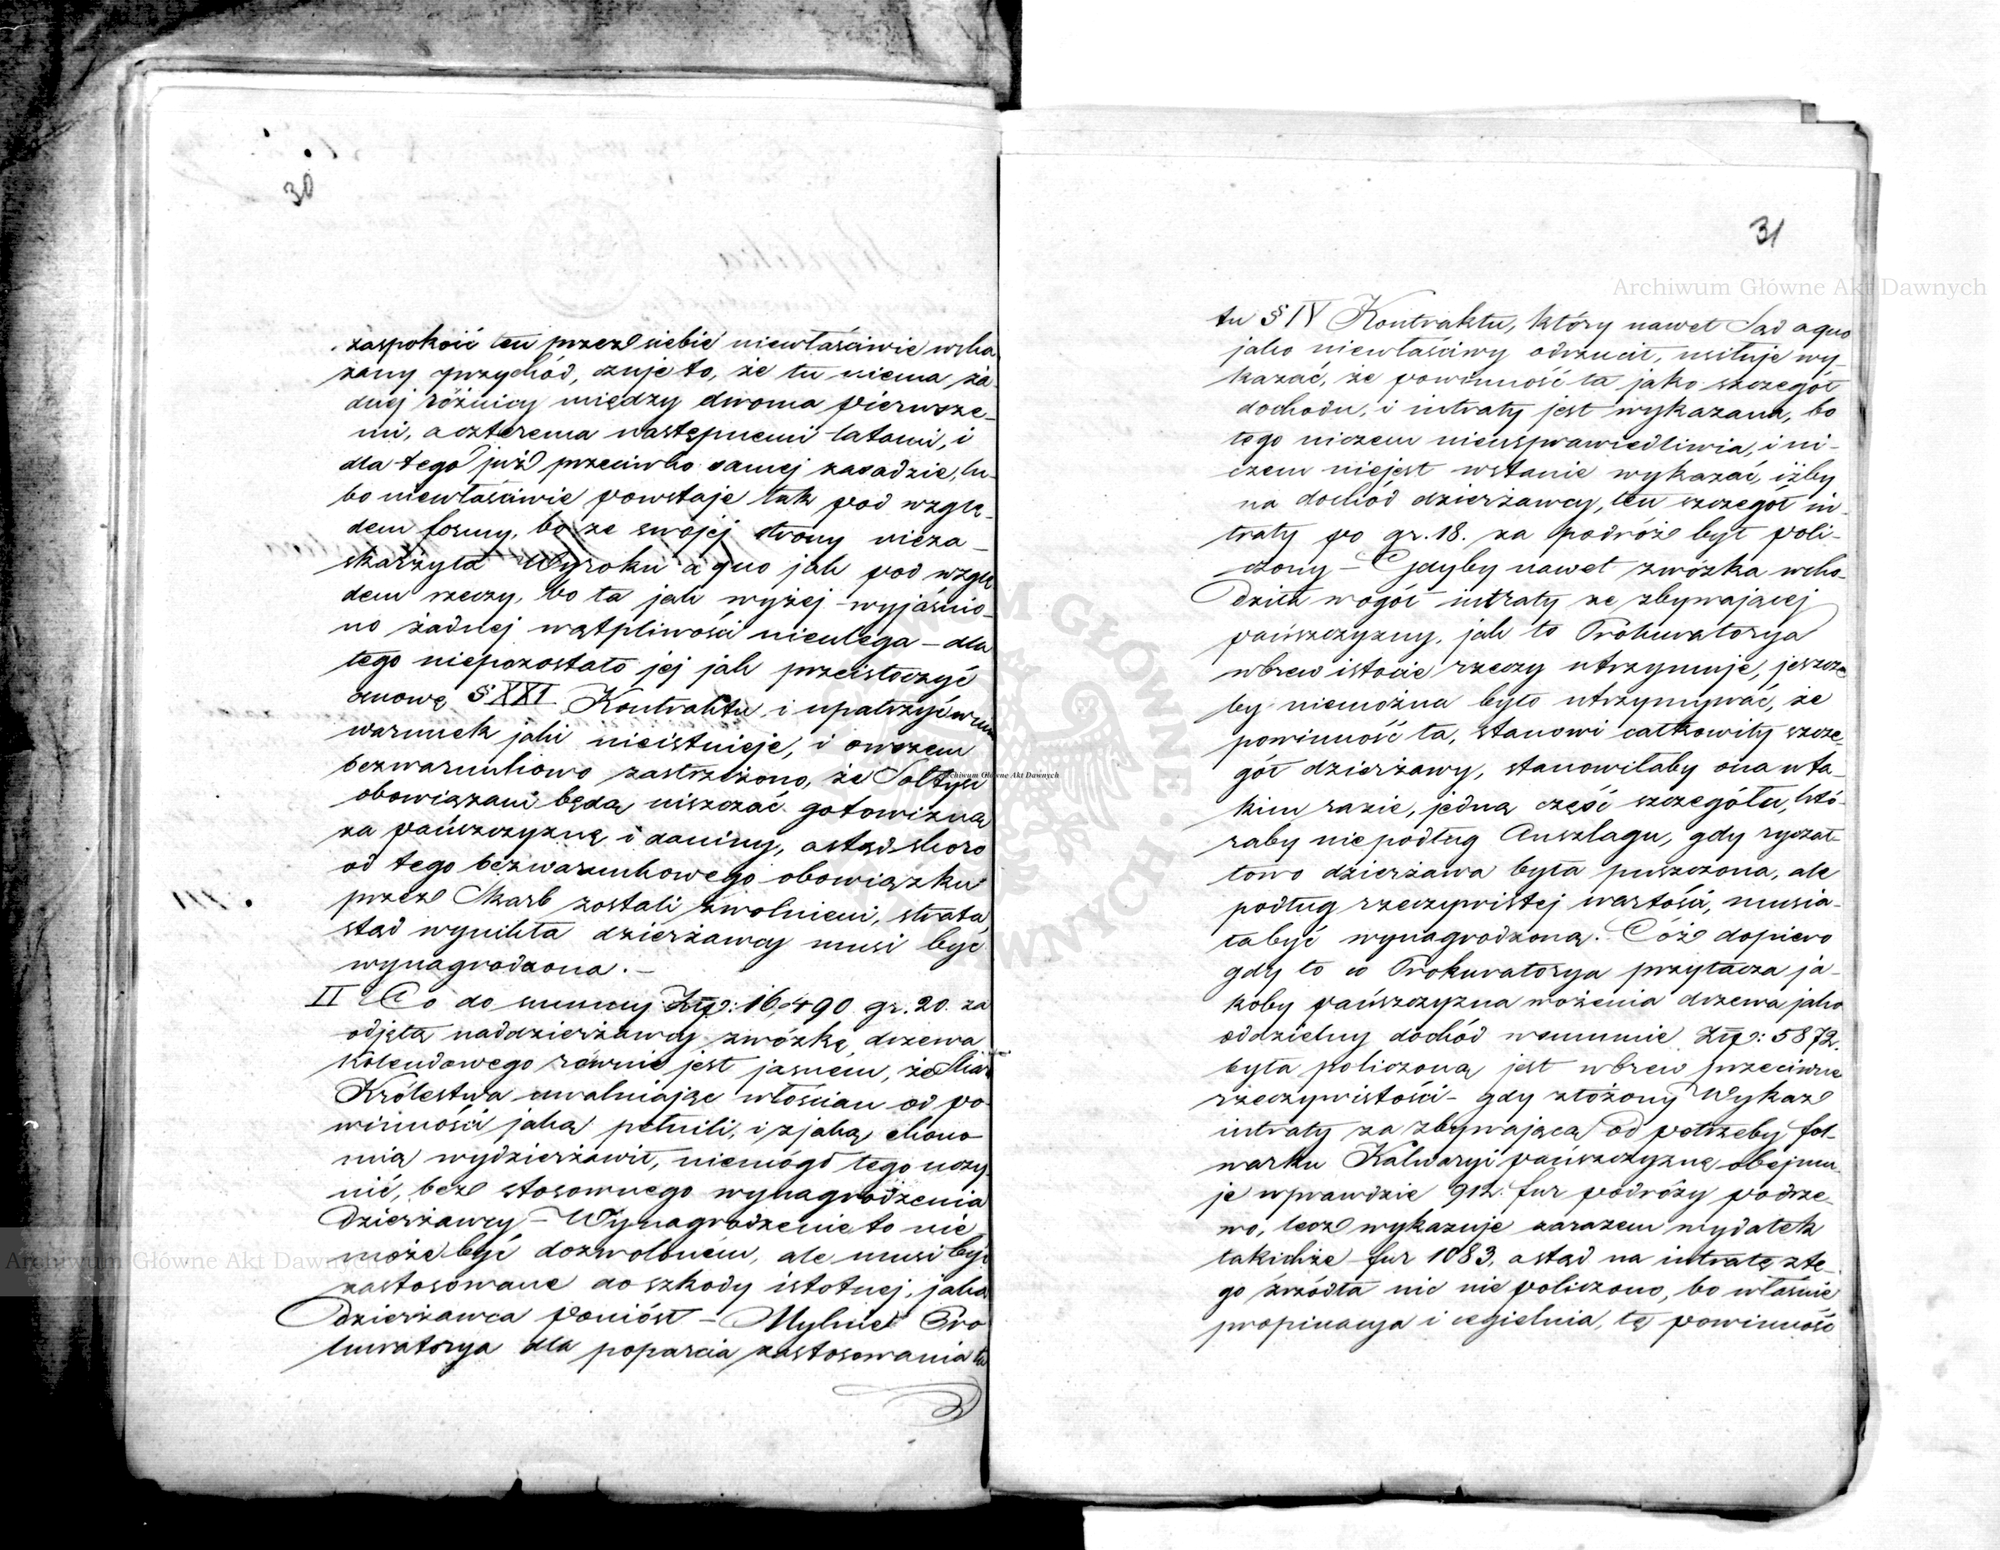 30
zaspokoić ten przez siebie niewłaściwie wska
zany przychód, czuje to, że tu niema ża
dnej różnicy między dwoma pierwsze-
mi, a czterema następnemi latami, i
dla tego już przeciwko samej zasadzie, lu-
bo niewłaściwie powstaje tak pod wzglę-
dem formy, bo ze swojej strony nieza-
skarżyła Wyroku a quo jak pod wzglę
dem rzeczy, bo ta jak wyżej wyjaśnio-
no żadnej wątpliwości nieulega – dla
tego niepozostało jej jak przeistoczyć
umowę § XXI Kontraktu i upatrzyć w nim
warunek jaki nieistnieje, i owszem
bezwarunkowo zastrzeżono, że Sołtysi
obowiązani będą uiszczać gotowizną
za pańszczyznę i daniny, a stąd skoro
od tego bezwarunkowego obowiązku
przez Skarb zostali zwolnieni, strata
stąd wynikła dzierżawcy musi być
wynagrodzona. –
II Co do summy Złp: 16,490 gr. 20. za
odjętą naddzierżawcy zwózkę drzewa
kolendowego równie jest jasnem, że Skar
Królestwa uwalniając włościan od po-
winności jaką pełnili, i z jaką ekono
mią wydzierżawił, niemógł tego uczy
nić, bez stosownego wynagrodzenia
Dzierżawcy – Wynagrodzenie to nie
może być dozwolonem, ale musi być
zastosowane do szkody istotnej, jaką
Dzierżawca poniósł – Mylnie Pro
kuratorya dla poparcia zastosowania tu
31
tu § IV Kontraktu, który nawet Sad a quo
jako niewłaściwy odrzucił, usiłuje wy-
kazać, że powinność ta jako szczegół
dochodu, i intraty jest wykazana, bo
tego niczem nieusprawiedliwia, i ni-
czem niejest wstanie wykazać, iżby
na dochód dzierżawcy, ten szczegół in-
traty po gr. 18. za podróż był poli-
czony – Gdyby nawet zwózka wcho-
dziła wogół intraty ze zbywającej
pańszczyzny, jak to Prokuratorya
wbrew istocie rzeczy utrzymuje, jeszcze
by niemożna było utrzymywać, że
powinność ta, stanowi całkowity szcze-
gół dzierżawy, stanowiłaby ona w ta-
kim razie, jedną część szczegółu, któ-
raby nie podług Anszlagu, gdy ryczał-
towo dzierżawa była puszczona, ale
podług rzeczywistej wartości, musia-
ła być wynagrodzoną. Cóż dopiero
gdy to co Prokuratorya przytacza ja-
koby pańszczyzna wożenia drzewa jako
oddzielny dochód w summie Złp: 5872.
była policzoną jest wbrew przeciwne
rzeczywistości – gdy złożony Wykaz
intraty za zbywającą od potrzeby fol-
warku Kalwaryi pańszczyznę obejmu-
je wprawdzie 912. fur podróży podrze-
wo, lecz wykazuje zarazem wydatek
takichże fur 1083, a stąd na intratę zte-
go źródła nic nie policzono, bo właśnie
propinacya i cegielnia, tę powinność
Archiwum Główne Akt Dawnych
Archiwum Główne Akt Dawnych
Archiwum Główne Akt Dawnych